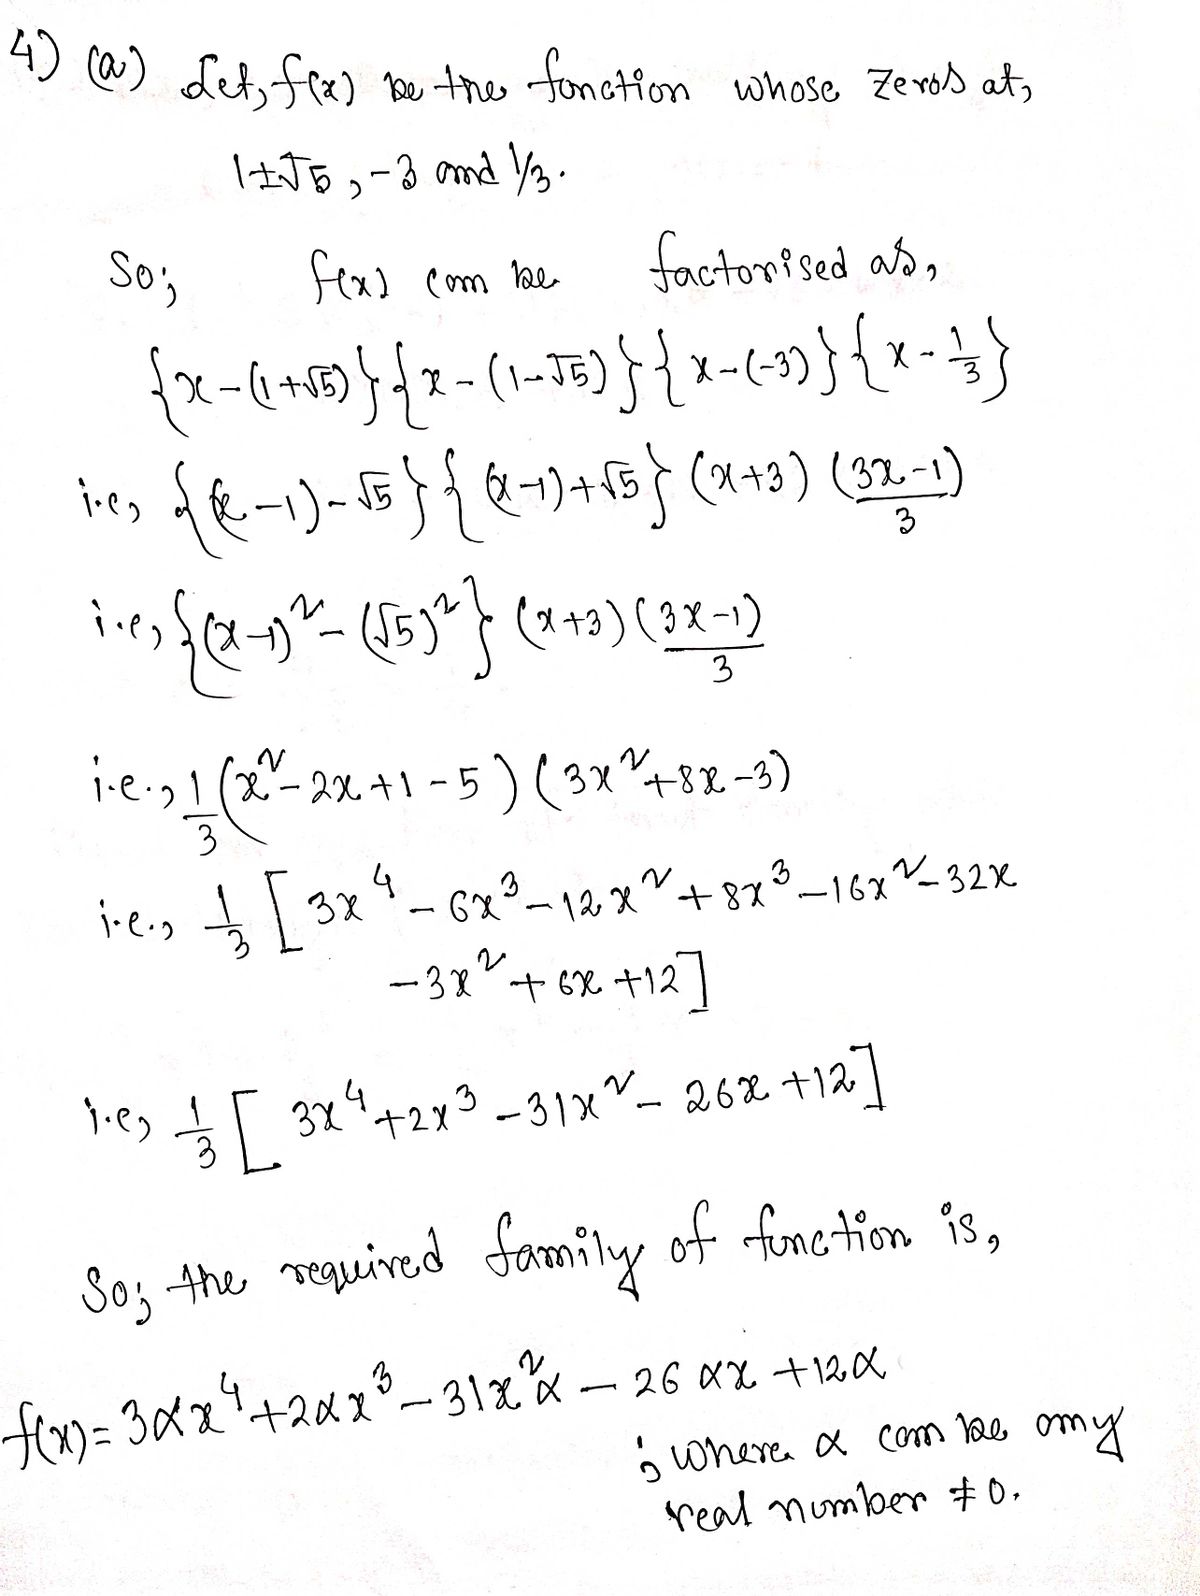 4) (a) Let, f(x) be the function whose zeros at,
1±√5, -3 and 1/3.
So; f(x) can be factorised as,
{x-(1+√5)}{x-(1-√5)}{x-(-3)}{x-1/3}
i.e, {(x-1)-√5}{(x-1)+√5}(x+3)(3x-1)/3
i.e, {(x-1)²-(√5)²}(x+3)(3x-1)/3
i.e., 1/3(x²-2x+1-5)(3x²+8x-3)
i.e., 1/3[3x⁴-6x³-12x²+8x³-16x²-32x
-3x²+6x+12]
i.e, 1/3[3x⁴+2x³-31x²-26x+12]
So; the required family of function is,
f(x)=3αx⁴+2αx³-31x²α-26αx+12α
; where α can be any
real number ≠0.